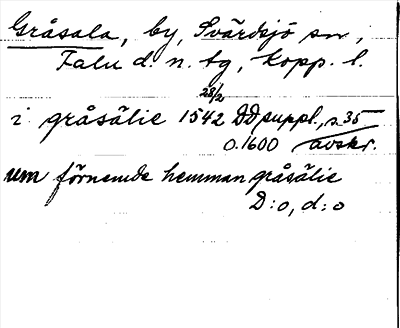 Gråsala, by, Svärdsjö sn,
Falu d. n. tg, Kopp. l.
i gråsälie 1542 28/2 DD suppl., s. 35
o. 1600 avskr.
um förnemde hemman gråsälie
D:o, d:o